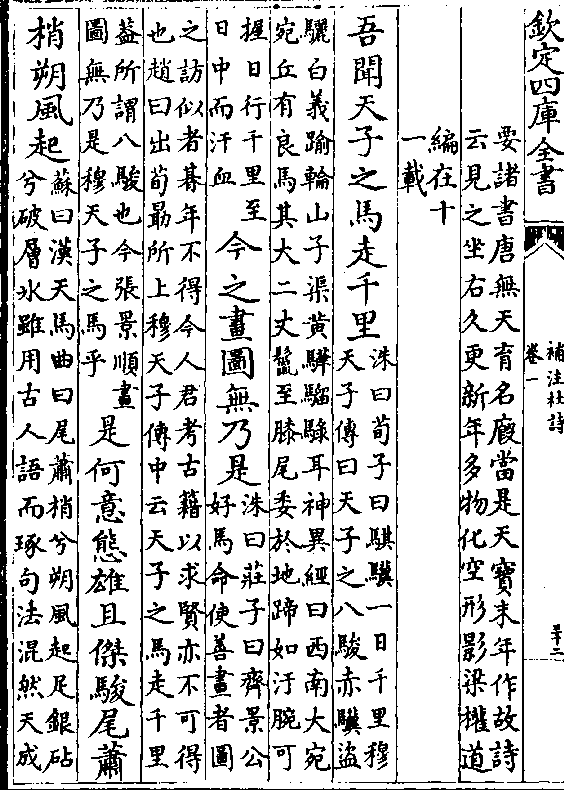 欽定四庫全書
補注杜詩
卷一
要諸書唐無天育名廐當是天寶末年作故詩
云見之坐右久更新年多物化空形影梁權道
編在十
一載
吾聞天子之馬走千里
洙曰荀子曰騏驥一日千里穆
天子傳曰天子之八駿赤驥盜
驪白義踰輪山子渠黃驊騮騄耳神異經曰西南大宛
宛丘有良馬其大二丈鬛至膝尾委於地蹄如汙腕可
握日行千里至
日中而汗血
今之畫圖無乃是
洙曰莊子曰齊景公
好馬命使善畫者圖
之訪似者朞年不得今人君考古籍以求賢亦不可得
也趙曰出荀勗所上穆天子傳中云天子之馬走千里
葢所謂八駿也今張景順畫
圖無乃是穆天子之馬乎
是何意態雄且傑駿尾蕭
梢朔風起
蘇曰漢天馬曲曰尾蕭梢兮朔風起足銀砧
兮破層氷雖用古人語而琢句法混然天成